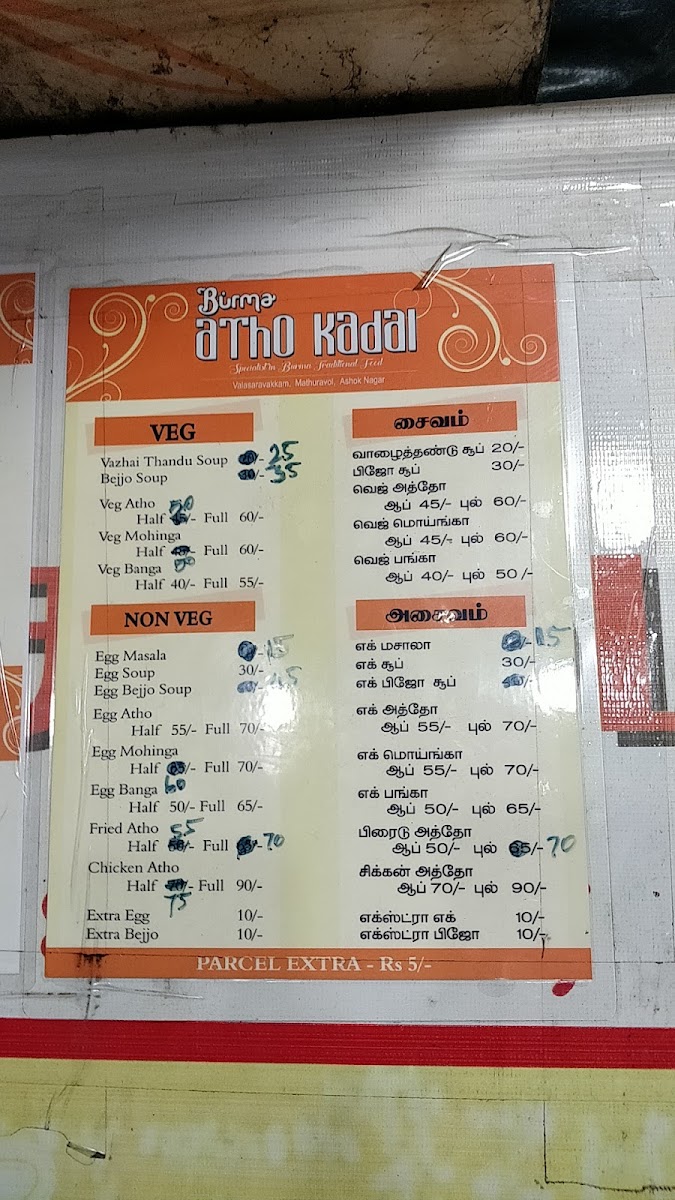 Burma
atho kadai
Specialist in Burma Traditional Food
Valasaravakkam, Mathuravol, Ashok Nagar
VEG
Vazhai Thandu Soup /- 25
Bejjo Soup /- 35
Veg Atho 50
Half 45/- Full 60/-
Veg Mohinga
Half /- Full 60/-
Veg Banga
Half 40/- Full 55/-
NON VEG
Egg Masala /- 15
Egg Soup 30/-
Egg Bejjo Soup /- 45
Egg Atho
Half 55/- Full 70/-
Egg Mohinga
Half /- Full 70/-
Egg Banga 60
Half 50/- Full 65/-
Fried Atho 55
Half /- Full /- 70
Chicken Atho
Half 70/- Full 90/-
75
Extra Egg 10/-
Extra Bejjo 10/-
சைவம்
வாழைத்தண்டு சூப் 20/-
பிஜோ சூப் 30/-
வெஜ் அத்தோ
ஆப் 45/- புல் 60/-
வெஜ் மொய்ங்கா
ஆப் 45/- புல் 60/-
வெஜ் பங்கா
ஆப் 40/- புல் 50/-
அசைவம்
எக் மசாலா /- 15
எக் சூப் 30/-
எக் பிஜோ சூப் /-
எக் அத்தோ
ஆப் 55/- புல் 70/-
எக் மொய்ங்கா
ஆப் 55/- புல் 70/-
எக் பங்கா
ஆப் 50/- புல் 65/-
பிரைடு அத்தோ
ஆப் 50/- புல் 65/- 70
சிக்கன் அத்தோ
ஆப் 70/- புல் 90/-
எக்ஸ்ட்ரா எக் 10/-
எக்ஸ்ட்ரா பிஜோ 10/-
PARCEL EXTRA - Rs 5/-